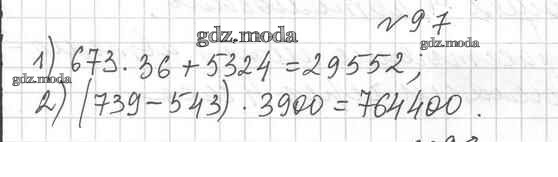 № 97
gdz.moda
gdz.moda
1) 673 · 36 + 5324 = 29552;
gdz.moda
2) (739 - 543) · 3900 = 764400.